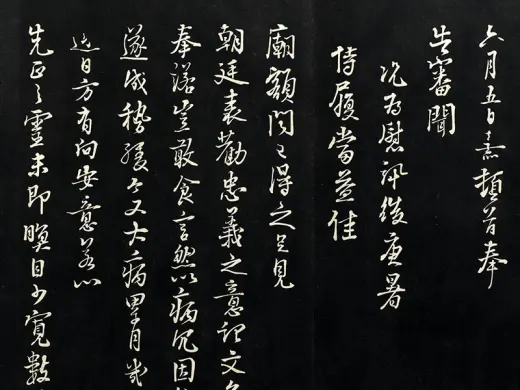 六月五日熹頓首奉
告審聞
況為慰訊後庚暑
侍履當益佳
廟額聞已得之足見
朝廷表勸忠義之意記文
奉諾豈敢食言然以病冗因
遂成稽緩今又大病累月幾
近日方有向安意若以
先正之靈未即瞑目少寬數